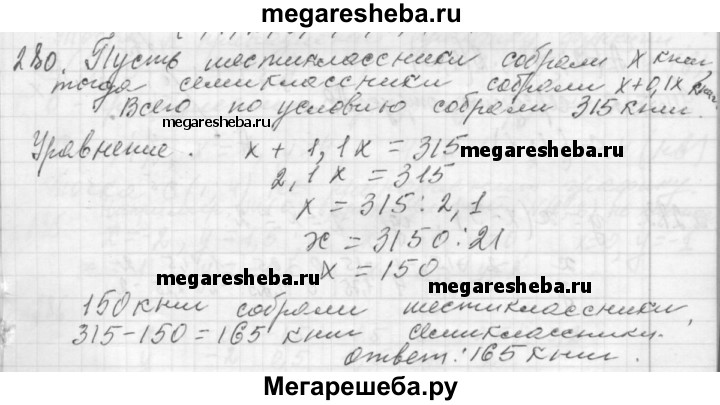 megaresheba.ru
280. Пусть шестиклассники собрали x книг
тогда семиклассники собрали x+0,1x книг.
Всего по условию собрали 315 книг.
megaresheba.ru
Уравнение. x + 1,1x = 315
megaresheba.ru
2,1x = 315
x = 315 : 2,1
x = 3150 : 21
x = 150
megaresheba.ru
megaresheba.ru
150 книг собрали шестиклассники,
315-150 = 165 книг семиклассники.
ответ: 165 книг.
Мегарешеба.ру